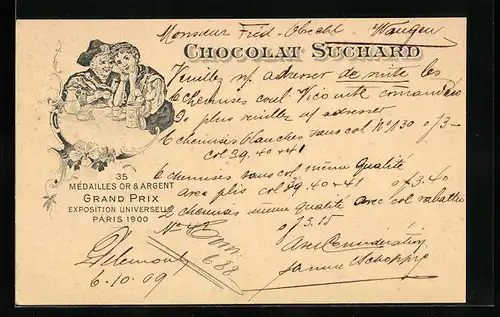 Monsieur Fréd. Obrecht Wangen
CHOCOLAT SUCHARD
Veuillez m/ adresser de suite les
6 chemises coul. Vicomte
De plus veuillez m/ adresser
6 chemises blanches sans col No 130 à f 3-
col 39. 40 & 41
6 chemises sans col même qualité
avec plis col 39. 40 & 41 à f 3.40
chemises même qualité avec col rabattu
à f 3.15
35
MÉDAILLES OR & ARGENT
GRAND PRIX
EXPOSITION UNIVERSELLE
PARIS 1900
688
Delémont
6.10.09
Avec Considération